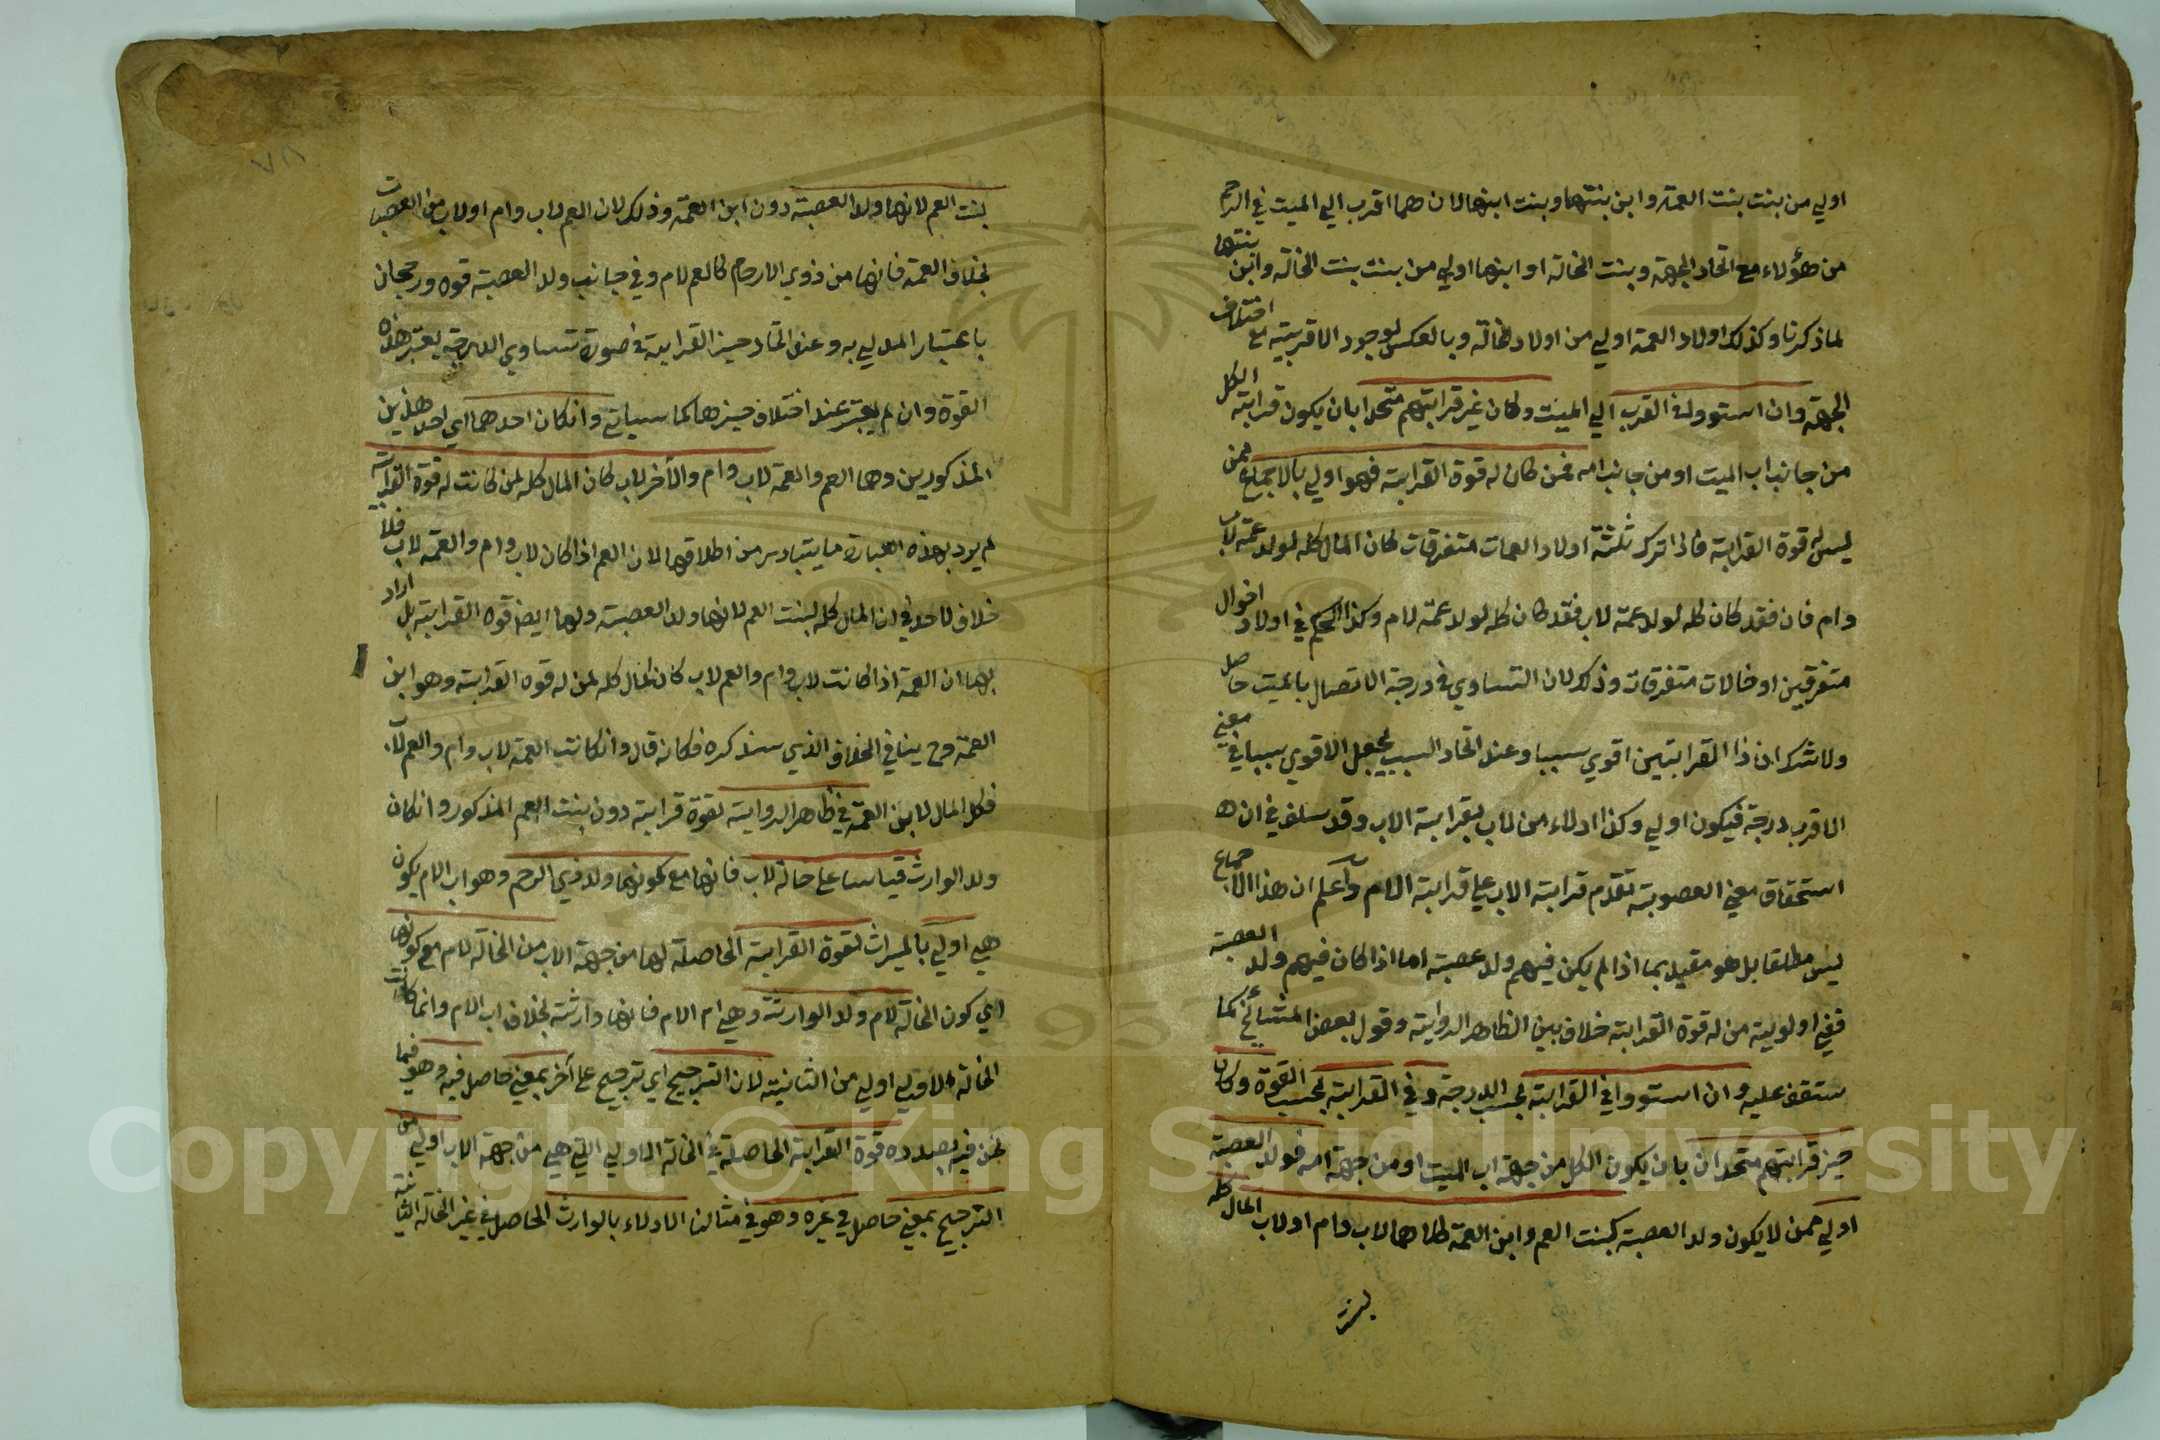 اولي من بنت بنت العمة وابن بنتها وبنت ابنها لانهما اقرب الي الميت في الرحم
من هؤلاء مع اتحاد الجهة وبنت الخالة او ابنها اولي من بنت بنت الخالة وابن بنتها
لما ذكرنا وكذلك اولاد العمة اولي من اولاد الخالة وبالعكس لوجود الاقربية مع اختلاف
الجهة وان استووا في القرب الي الميت وكان غير قرابتهم متحدا بان يكون قرابة الكل
من جانب اب الميت او من جانب امه فمن كان له قوة القرابة فهو اولي بالاجماع ممن
ليس له قوة القرابة فاذا ترك ثلثة اولاد العمات متفرقات كان المال كله لولد عمة لاب
وام فان فقد كان كله لولد عمة لاب فان فقد كان كله لولد عمة لام وكذا الحكم في اولاد اخوال
متفرقين او خالات متفرقات وذلك لان التساوي في درجة الاتصال بالميت حاصل
ولا شك ان ذا القرابتين اقوي سببا وعند اتحاد السبب يجعل الاقوي سببا في معني
الاقرب درجة فيكون اولي وكذا ادلاء من لاب بقرابة الاب وقد سلف في ان
استحقاق معني العصوبة تقدم قرابة الاب علي قرابة الام واعلم ان هذا الاجماع
ليس مطلقا بل هو مقيد بما اذا لم يكن فيهم ولد عصبة اما اذا كان فيهم ولد العصبة
ففي اولوية من له قوة القرابة خلاف بين الظاهر الرواية وقول بعض المشائخ كما
ستقف عليه وان استووا في القرابة بحسب الدرجة وفي القرابة بحسب القوة وكان
حيز قرابتهم متحدا بان يكون الكل من جهة اب الميت او من جهة امه فولد العصبة
اولي ممن لا يكون ولد العصبة كبنت العم وابن العمة كلاهما لاب وام او لاب المال كله
لبنت
٧٨
بنت العم لانها ولد العصبة دون ابن العمة وذلك لان العم لاب وام او لاب من العصبات
بخلاف العمة فانها من ذوي الارحام كالعم لام وفي جانب ولد العصبة قوة ورجحان
باعتبار المدلي به وعند اتحاد حيز القرابة في صورة تساوي الدرجة يعتبر هذه
القوة وان لم يعتبر عند اختلاف حيزها كما سياتي وان كان احدهما اي احد هذين
المذكورين وهما العم والعمة لاب وام والآخر لاب كان المال كله لمن كانت له قوة القرابة
لم يرد بهذه العبارة ما يتبادر من اطلاقها لان العم اذا كان لاب وام والعمة لاب فلا
خلاف لاحد في ان المال كله لبنت العم لانها ولد العصبة ولها ايضا قوة القرابة بل اراد
بها ان العمة اذا كانت لاب وام والعم لاب كان المال كله لمن له قوة القرابة وهو ابن
العمة وح ينافي الخلاف الذي سنذكره فكانه قال وان كانت العمة لاب وام والعم لاب
فكل المال لابن العمة في ظاهر الرواية لقوة قرابة دون بنت العم المذكور وان كان
ولد الوارث قياسا علي خالة لاب فانها مع كونها ولد ذي الرحم وهو اب الام يكون
هي اولي بالميراث لقوة القرابة الحاصلة لها من جهة الاب من الخالة لام مع كونها
اي كون الخالة لام ولد الوارثة وهي ام الام فانها وارثة بخلاف اب الام وانما كانت
الخالة الاولي اولي من الثانية لان الترجيح اي ترجيح علي آخر بمعني حاصل فيه وهو فيما
نحن فيه بصدده قوة القرابة الحاصلة في الخالة الاولي التي هي من جهة الاب اولي من
الترجيح بمعني حاصل في غيره وهو في مثالنا الادلاء بالوارث الحاصل في غير الخالة الثانية